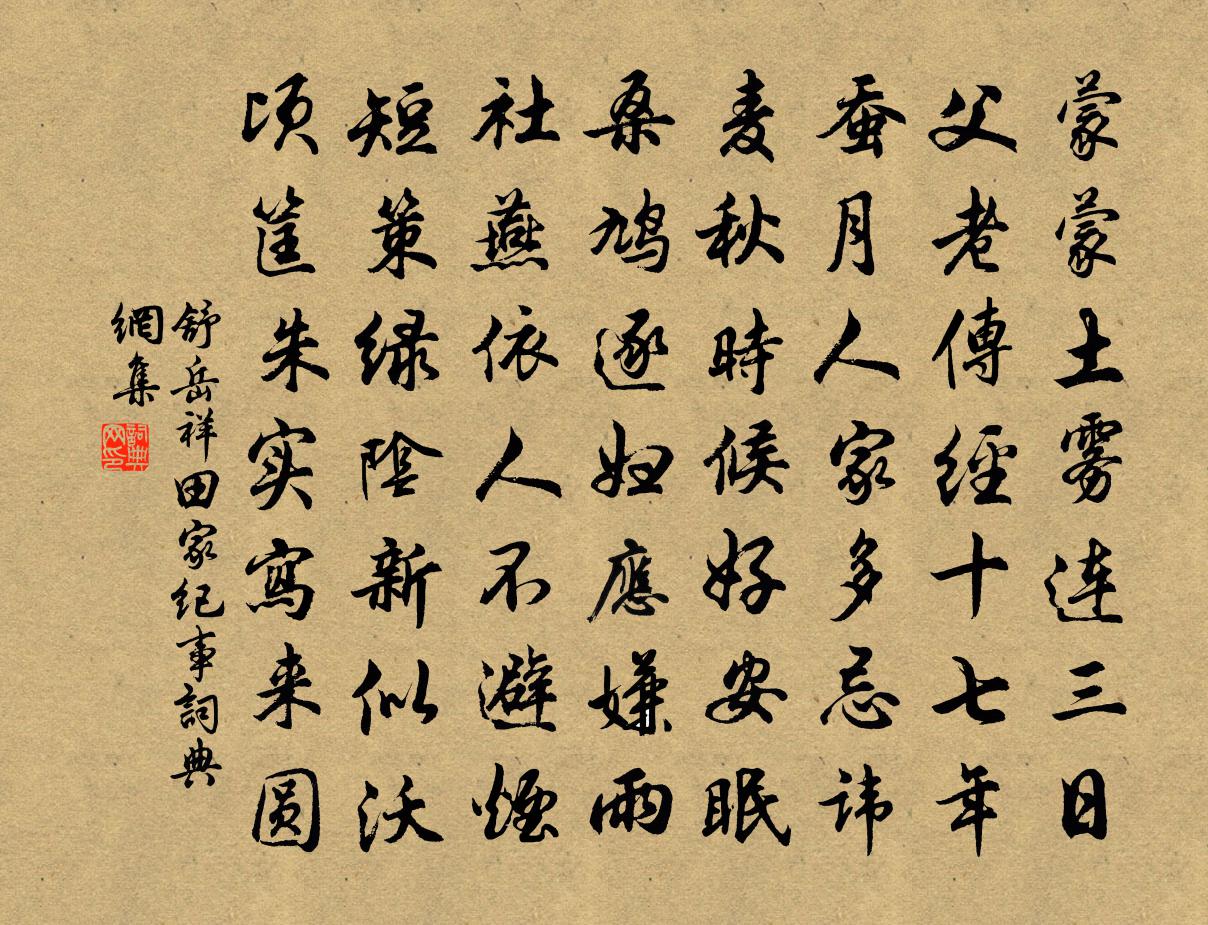 蒙蒙土雾连三日
父老傳經十七年
蚕月人家多忌讳
麦秋時候好安眠
桑鸠逐妇應嫌雨
社燕依人不避煙
短策绿陰新似沃
顷筐朱实寫来圆
舒岳祥田家纪事詞典
網集
詞典网印